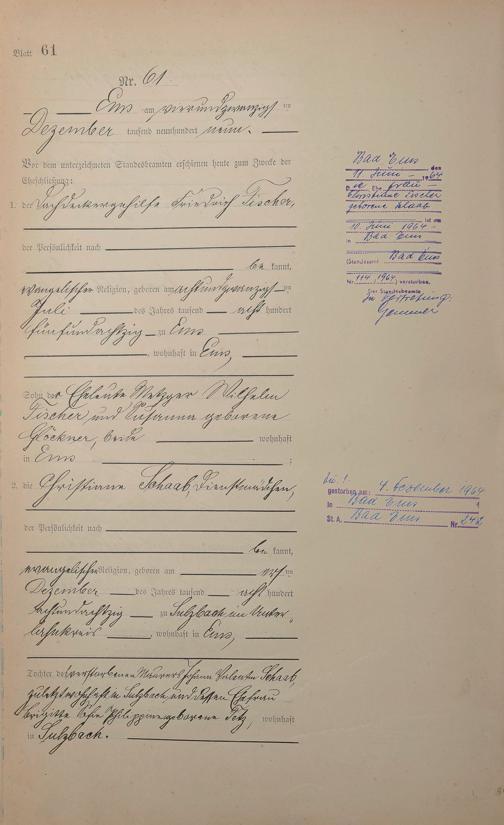 Blatt 61
Nr. 61
Ems am vierundzwanzigsten
Dezember tausend neunhundert neun.
Vor dem unterzeichneten Standesbeamten erschienen heute zum Zwecke der
Eheschließung:
1. der Dachdeckergehilfe Friedrich Fischer,
der Persönlichkeit nach
bekannt,
evangelischer Religion, geboren am achtundzwanzigsten
Juli des Jahres tausend acht hundert
fünfundachtzig zu Ems
, wohnhaft in Ems,
Sohn der Eheleute Metzger Wilhelm
Fischer und Susanna geborene
Glöckner, beide wohnhaft
in Ems ;
2. die Christiane Schaab, Dienstmädchen,
der Persönlichkeit nach
bekannt,
evangelischer Religion, geboren am
Dezember des Jahres tausend acht hundert
achtundachtzig zu Sulzbach im Unter-
lahnkreis , wohnhaft in Ems,
Tochter des verstorbenen Maurers Johann Valentin Schaab,
zuletzt wohnhaft in Sulzbach, und dessen Ehefrau
Philippine geborene wohnhaft
in Sulzbach.
Bad Ems den
11. Juni 1964
Die Ehefrau
Christiane Fischer
geborene Schaab
ist am
10. Juni 1964
in Bad Ems
(Standesamt Bad Ems
Nr. 114/1964) verstorben.
Der Standesbeamte
In Vertretung
zu 1
gestorben am: 4. November 1964
in Bad Ems
St. A. Bad Ems Nr. 242